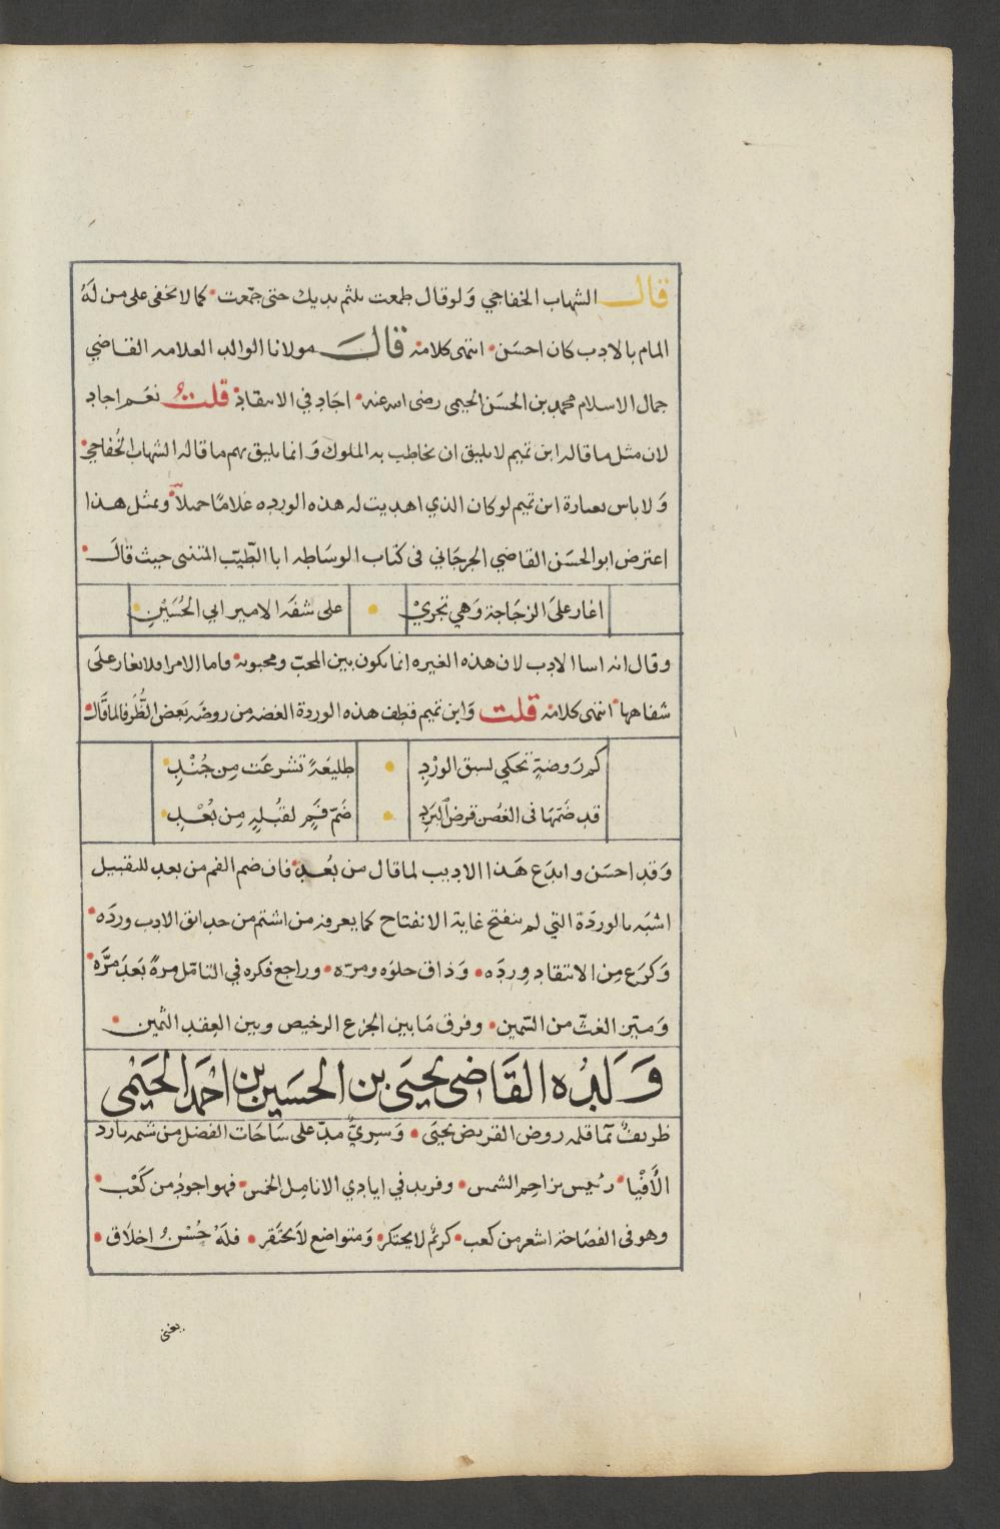 قال الشهاب الخفاجي وَلوقال طمعت بلثم يديك حتى تجمّعت كما لا يخفى على من لَهُ
المام بالادب كان احسَن انتهى كلامه قال مولانا الوالد العلامه القاضي
جمال الاسلام محمد بن الحسَن الحيمى رضى الله عنه اجَاد في الانتقاد قلت نعَم اجاد
لان مثل ما قاله ابن تميم لا يليق ان يخاطب به الملوك وَانما يليق بهم ما قاله الشهاب الخُفاجي
وَلا باس بعبارة ابن تميم لو كان الذي اهديت له هذه الورده غلامًا جميلاً وبمثل هذا
اعترض ابو الحسَن القاضي الجرجَاني في كتاب الوسَاطه ابا الطّيّب المتنبي حيث قالَ
اغار علىَ الزجَاجة وَهي تجريْ على شفَه الامير ابي الحُسَيْنِ
وقال انه اسا الادب لان هذه الغيره انما تكون بين المحبّ ومحبوبه واما الامرا فلا يغار علىَ
شفاهها انتهى كلامه قلت وَابن تميم قطف هذه الوردة الغضه من روضَه بَعض الظُرفا لما قَال
كم رَوضةٍ تحكي لسبق الورْدِ طليعَةً تشرعَت مِن جُنْدِ
قد ضَمّهَا في الغصُن قرصُ البَردِ ضَمّ فَمٍ لقُبلةٍ مِن بُعْدِ
وَقد احسَن وابدَع هَذا الاديب لما قال من بُعد فان ضم الفم من بعد للتقبيل
اشبَه بالوردَة التي لم تنفتح غاية الانفتاح كما يعرفه من اشتم من حدائق الادب وردَه
وَكرَع مِن الانتقاد وِردَه وَذاق حلوَه ومرّه وراجع فكره في التامّل مرةً بَعَدَ مَرَّه
وَميّز الغثّ من السّمين وفرق مَا بين الجزع الرخيص وبين العِقد الثمين
وَلَدُه القَاضي يحيَى بن الحسَين بن احمَد الحَيْمي
ظريفٌ تما قلمه روض القريض يحيَى وَسريٌّ مدّ على سَاحَات الفضل من شمه بارد
الأَفيَا رئيس يزاحم الشمس وفريد في ايادي الانامِل الخمس فهو اجودُ من كَعْب
وهو في الفصَاحَة اشعر من كعب كريمٌ لا يحتكر وَمتواضع لاَ يحتَقر فلَهُ حُسْنُ اخلاق
يغني